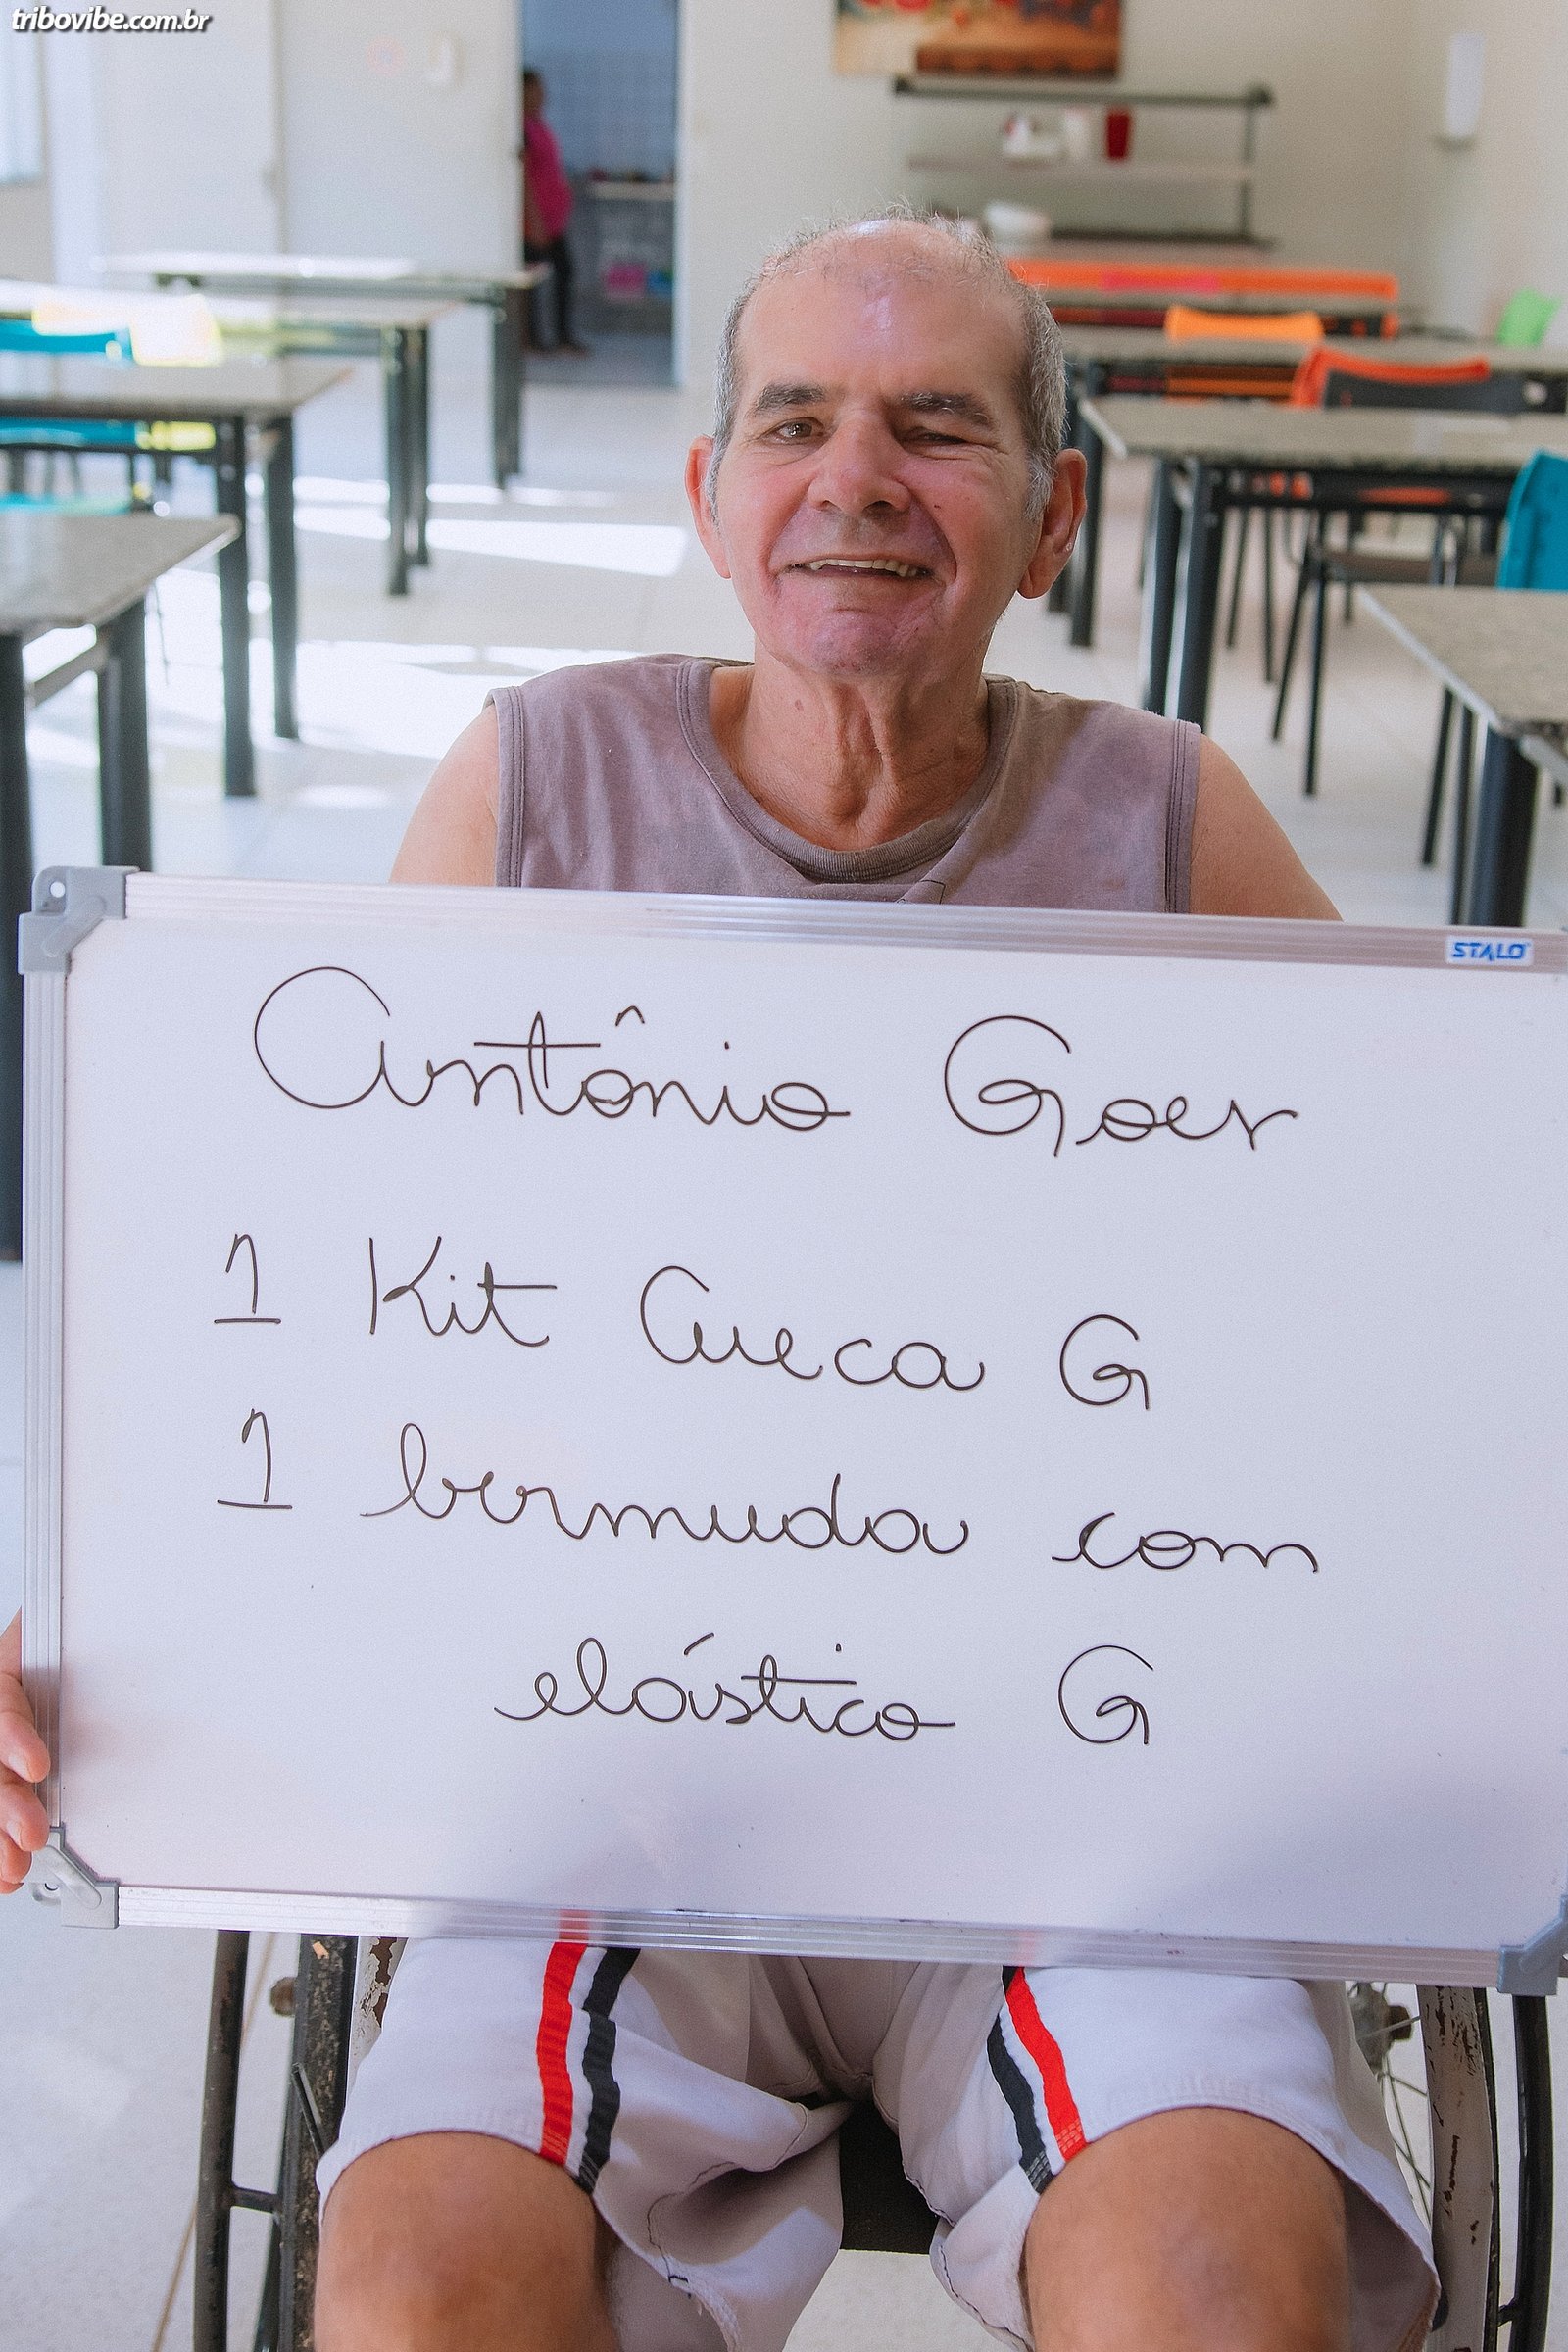 tribovibe.com.br
STALO
Antônio Goes
1 Kit Cueca G
1 bermuda com
elástico G